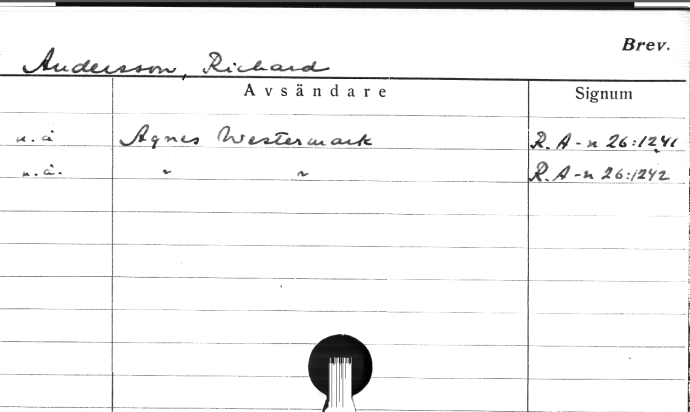 Brev.
Andersson, Richard
Avsändare Signum
u.å Agnes Westermark R.A-n 26:1241
u.å. " " R.A-n 26:1242